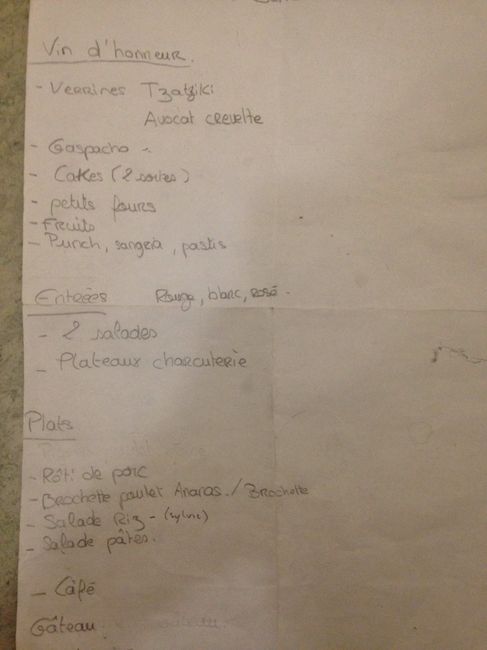 Vin d'honneur.
- Verrines Tzatziki
Avocat crevette
- Gaspacho -
- Cakes (2 sortes)
- petits fours
- Fruits
- Punch, sangria, pastis
Entrées Rouge, blanc, rosé -
- 2 salades
- Plateaux charcuterie
Plats
- Rôti de porc
- Brochette poulet Ananas. / Brochette
- Salade Riz -
- Salade pâtes.
- Café
Gâteau